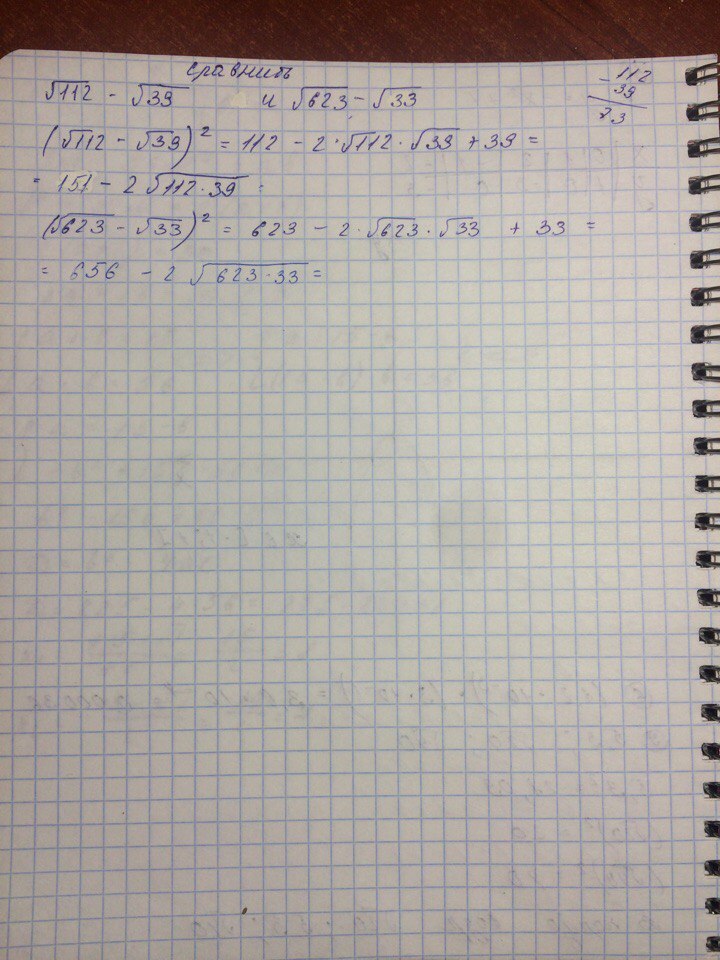 сравнить
√112 - √39 и √623 - √33
(√112 - √39)² = 112 - 2·√112·√39 + 39 =
= 151 - 2√112·39 =
(√623 - √33)² = 623 - 2·√623·√33 + 33 =
= 656 - 2√623·33 =
- 112
39
73